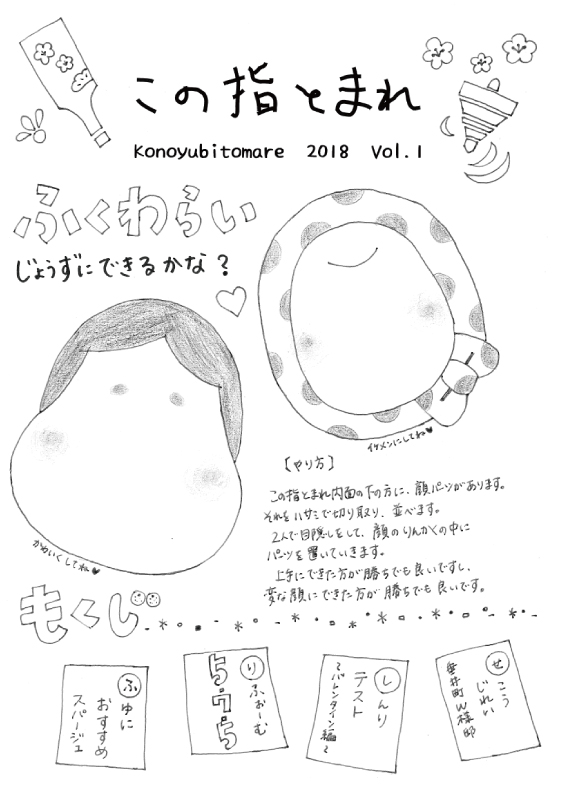 この指とまれ
Konoyubitomare 2018 Vol.1
ふくわらい
じょうずにできるかな？
イケメンにしてね♥
かわいくしてね♥
【やり方】
この指とまれ内面の下の方に、顔パーツがあります。
それをハサミで切り取り、並べます。
2人で目隠しをして、顔のりんかくの中に
パーツを置いていきます。
上手にできた方が勝ちでも良いですし、
変な顔にできた方が勝ちでも良いです。
もくじ
せこう
じれい
垂井町W様邸
しんり
テスト
〜バレンタイン編〜
りふぉーむ
5・7・5
ふゆに
おすすめ
スパージュ